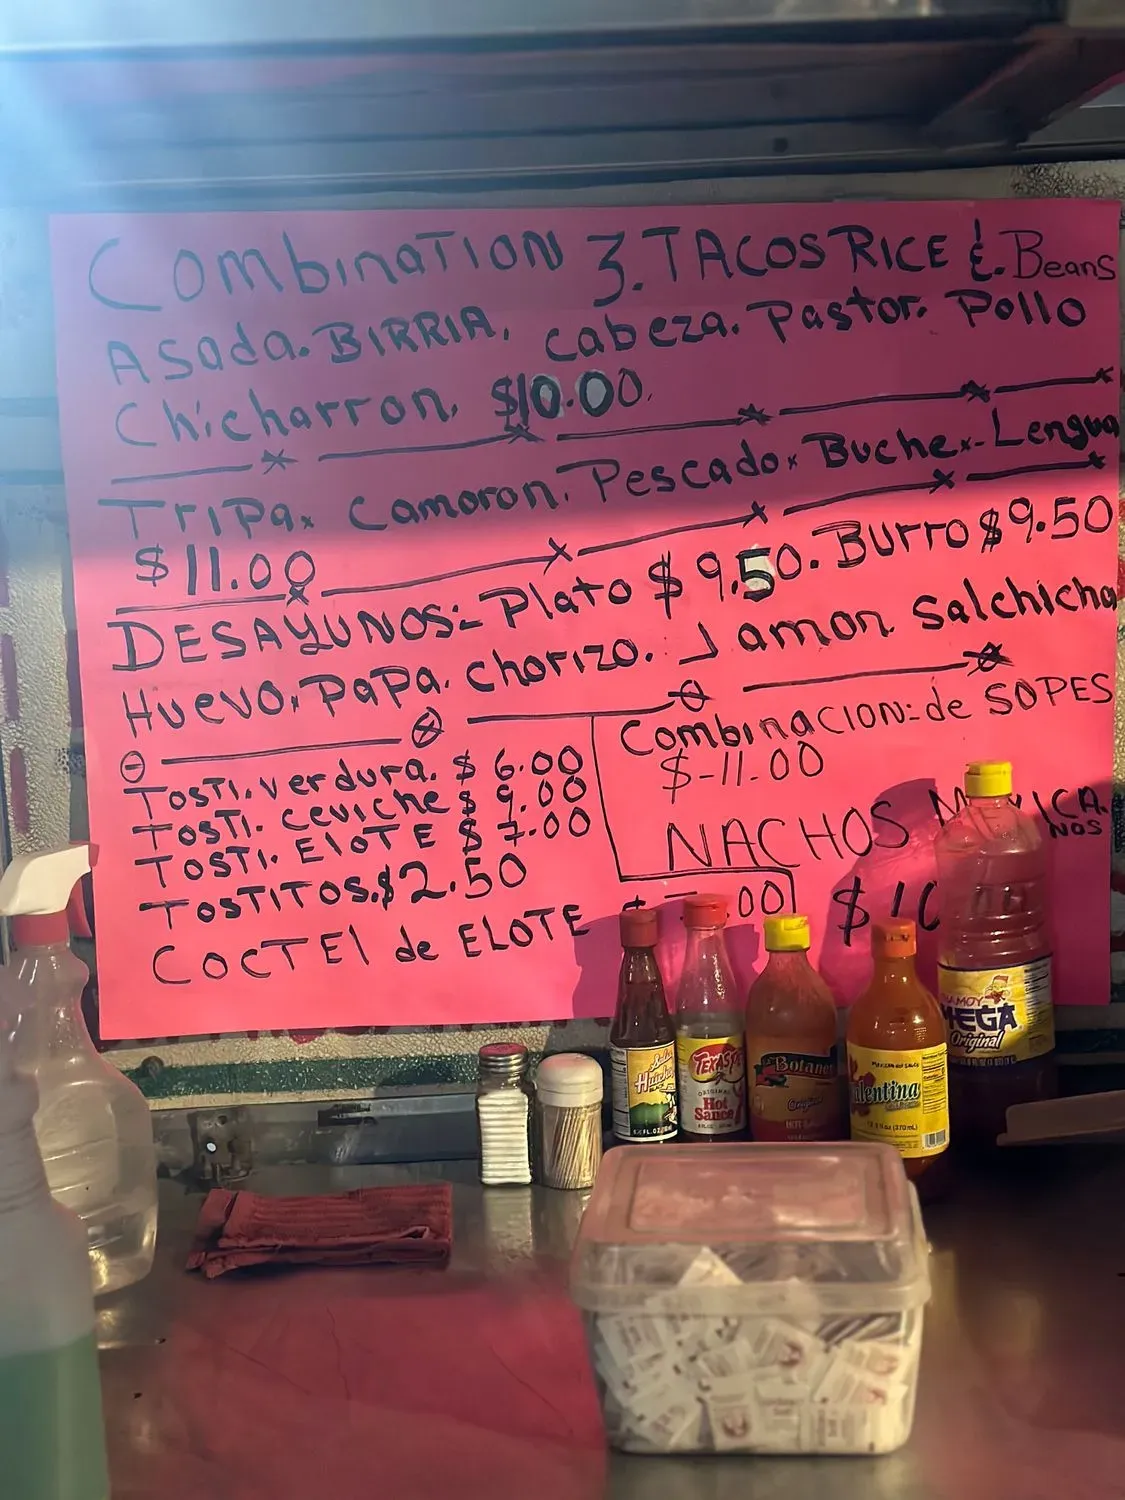 COMBINATION 3. TACOS RICE &. Beans
Asada. BIRRIA. cabeza. Pastor. Pollo
Chicharron. $10.00.
Tripa x Camoron. Pescado x Buche x - Lengua
$11.00
DESAYUNOS:- Plato $9.50. Burro $9.50
Huevo. Papa. chorizo. Jamon. Salchicha
TOSTI. verdura. $ 6.00
TOSTI. ceviche $ 9.00
TOSTI. ELOTE $ 7.00
TOSTITOS. $2.50
COCTEL de ELOTE
.00
COMBINACION:- de SOPES
$-11.00
NACHOS
NOS
$10
Salsa
Huichol
TEXAS
ORIGINAL
Hot
Sauce
Botane
Original
MEXICAN HOT SAUCE
alentina
(370mL)
AMOY
MEGA
Original